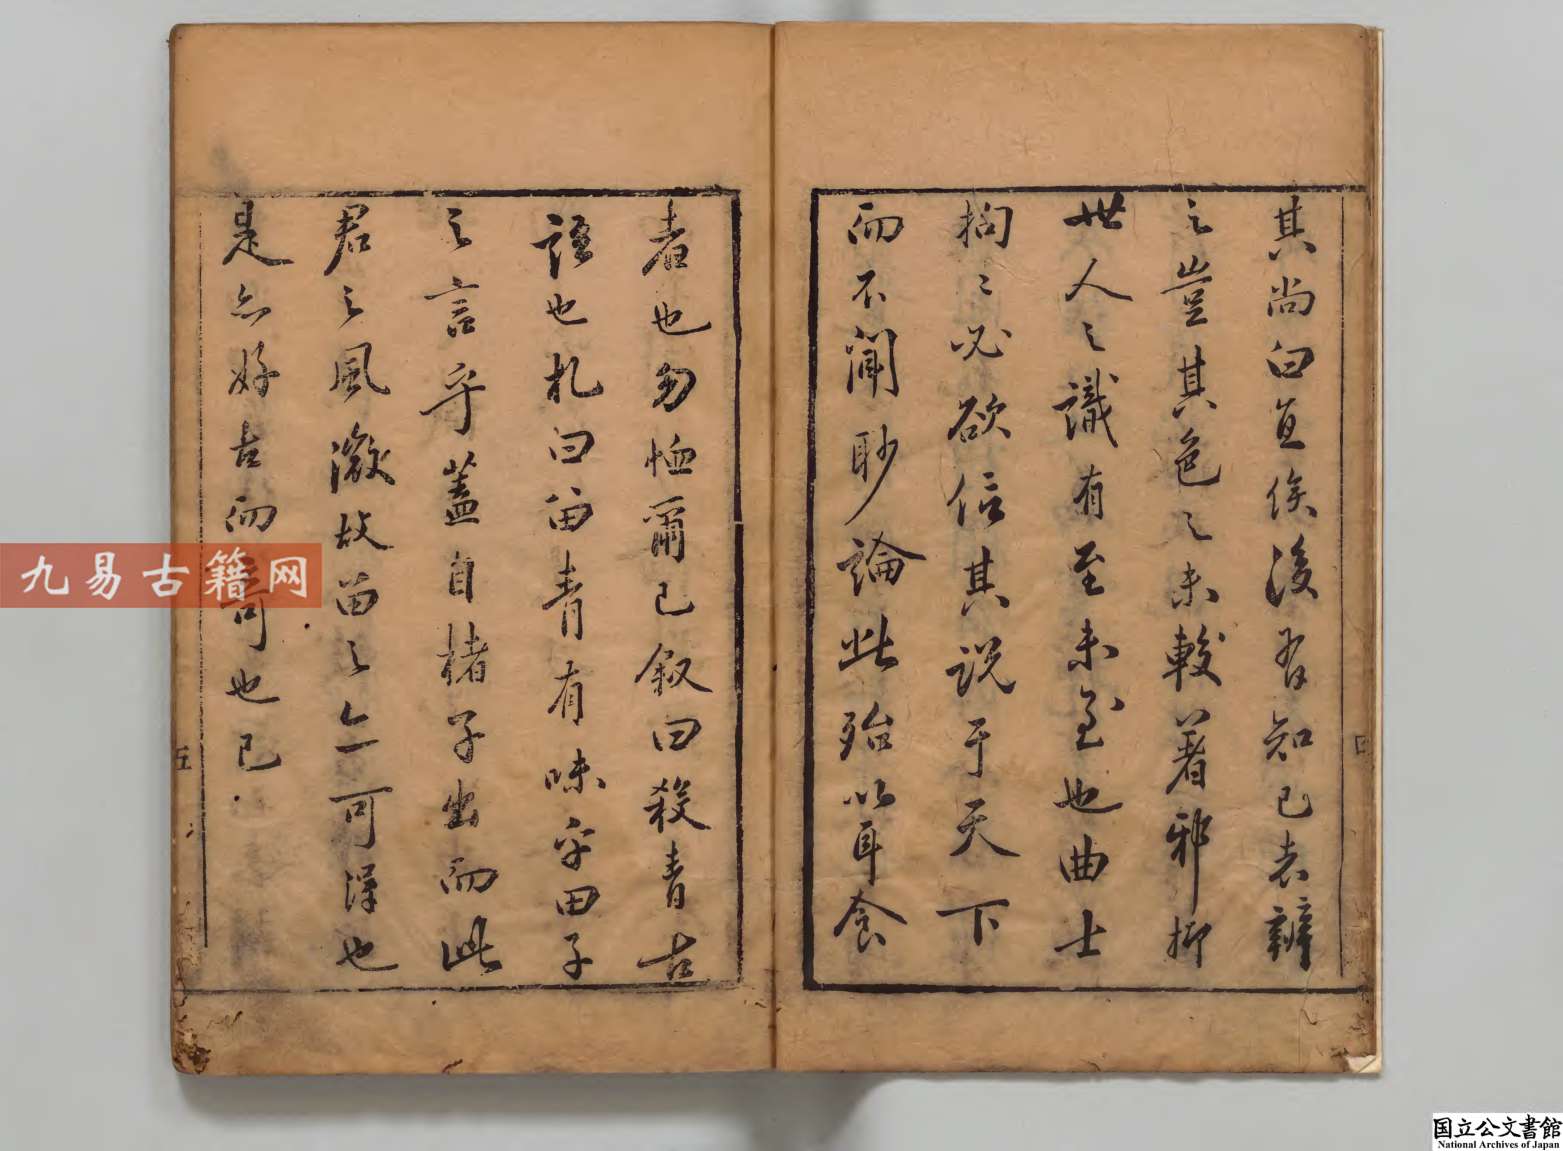 其尚曰直俟後有知己者辨
之豈其色之未較著邪抑
世人之識有至未至也曲士
拘〻必欲信其說于天下
而不聞眇論此殆以耳食
者也勿恤爾已叙曰殺青古
語也札曰留青有味乎田子
之言乎蓋自楮子出而此
君之風微故留之亦可得也
是亦好古而奇也已
四
五
九易古籍网
国立公文書館
National Archives of Japan